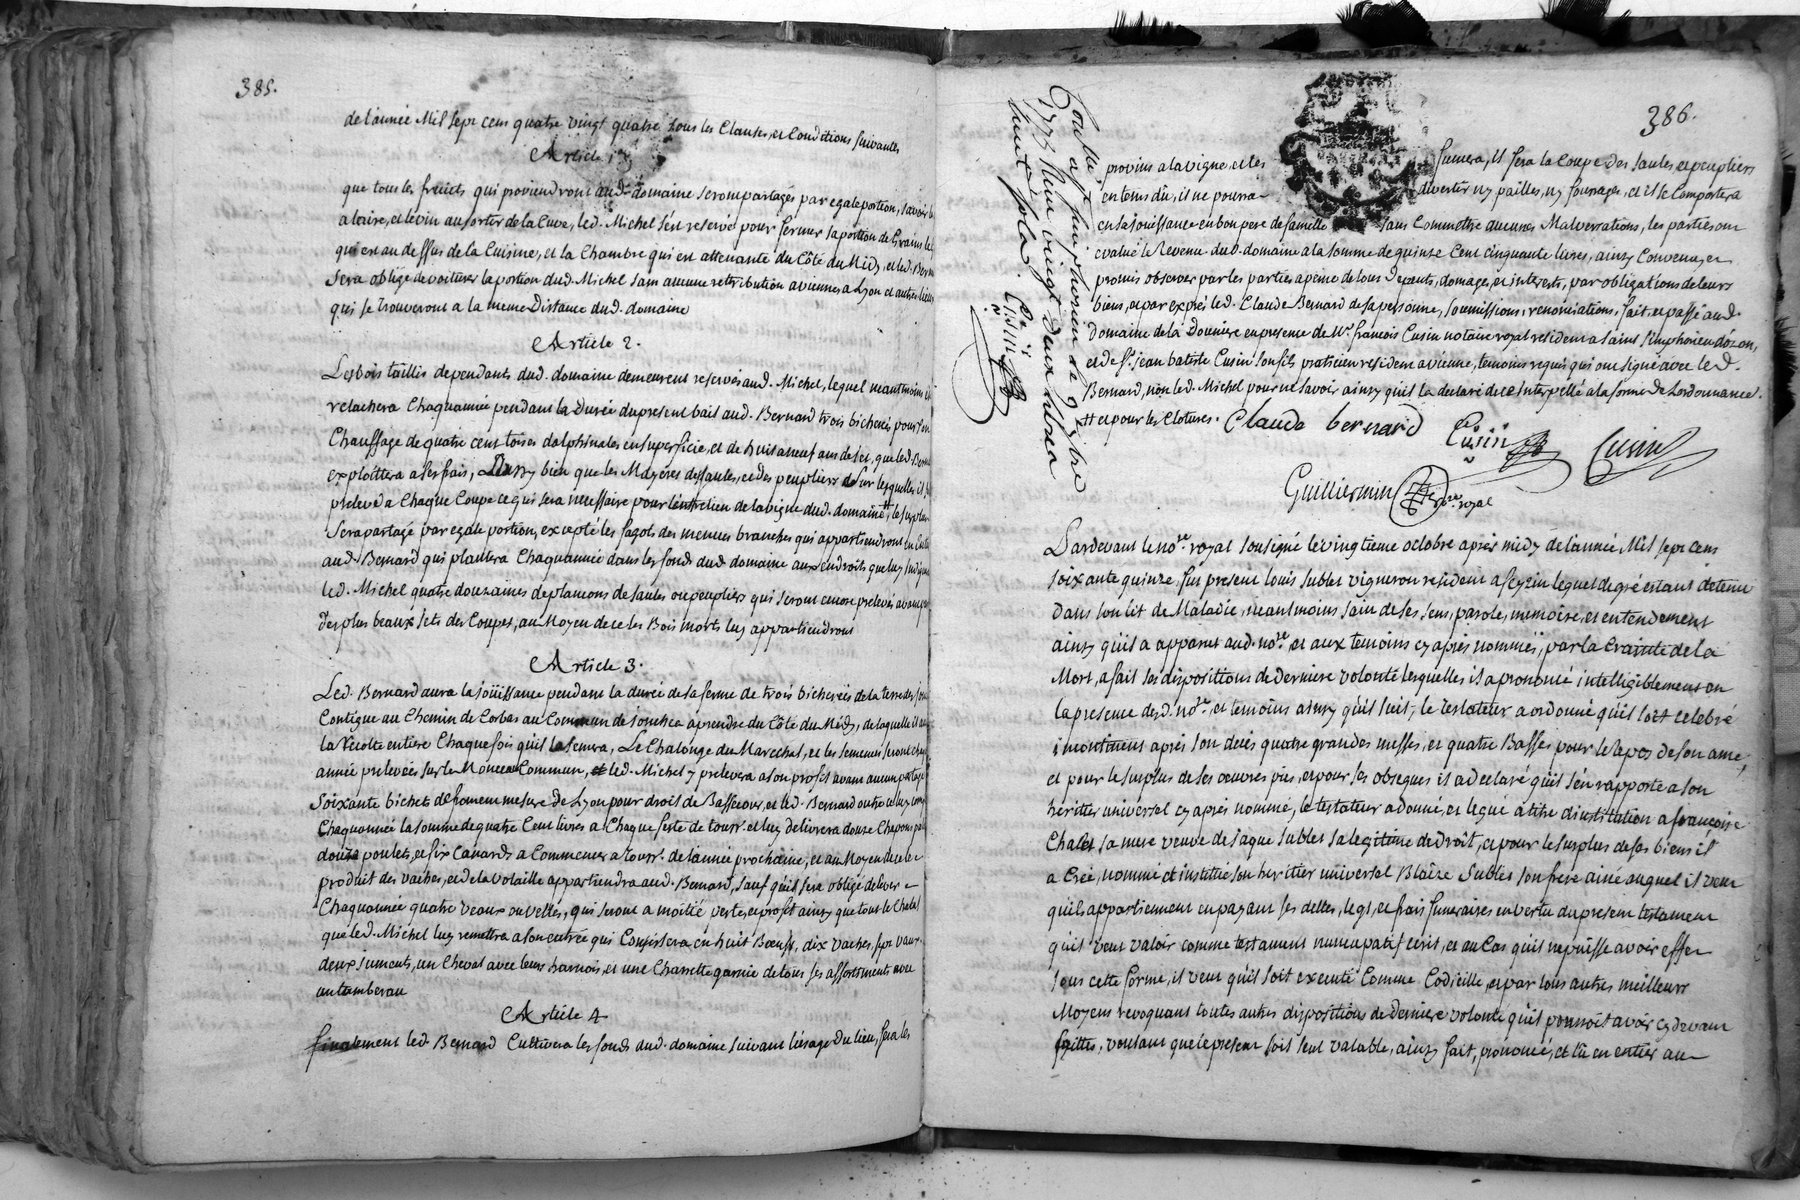 385.
de l'année Mil sept cens quatre vingt quatre sous les Clauses, et Conditions suivantes
Article 1er
que tous les fruits qui proviendront aud. domaine seront partagés par egale portion, savoir le
a laire, et le vin au sortir de la Cuve, led. Michel s'ést reservé pour fermer sa portion de Grains le
qui est au dessus de la Cuisine, et la Chambre qui est attenante du Côté du Midy, et led. Bern
sera obligé de voiturer la portion dud. Michel sans aucune retribution a vienne, a Lyon et autres lieux
qui se trouveront a la meme Distance dud. domaine
Article 2.
Les bois taillis dependants dud. domaine demeurent reservés aud. Michel, lequel neantmoins
relachera Chaqu'année pendant la Durée du present bail aud. Bernard trois bicherés pour son
Chauffage de quatre cent toises dalphinales en superficie, et de huit a neuf ans de set, que led. Bern
exploittera a ses frais, aussy bien que les Mayeres des saules, et des peupliers sur lesquelles il
prelevé a Chaque Coupe ce qui sera necessaire pour l'entretien de la vigne dud. domaine # le surplus
sera partagé par egale portion, excepté les fagots des menues branches qui appartiendront
aud. Bernard qui plantera Chaqu'année dans les fonds dud. domaine aux endroits que luy indiq
led. Michel quatre douzaines de plançons de saules ou peupliers qui seront encore prelevés avant
des plus beaux sets des Coupes, au Moyen de ce les Bois morts luy appartiendront
Article 3.
Led. Bernard aura la joüissance pendant la durée de sa ferme de trois bicherées de la terre des
Contigue au Chemin de Corbas au Commun de a prendre du Côté du Midy, de laquelle il
la recolte entiere Chaque fois qu'il la semera, Le Chalonge du Marechal, et les semences seront chaqu
année prelevées sur le Monceau Commun, led. Michel y prelevera a son profit avant aucun partage
soixante bichets de froment mesure de Lyon pour droit de Bassecour, et led. Bernard outre ce luy
Chaqu'année la somme de quatre Cent livres a Chaque feste de touss'. et luy delivrera douze Chapons
douze poulets, et six Canards a Commencer a Touss'. de l'année prochaine, et au Moyen de ce le
produit des vaches, et de la volaille appartiendra aud. Bernard, sauf qu'il sera obligé delever
Chaqu'année quatre veaux ou velles, qui seront a moitié perte, et profit ainsy que tout le Chetel
que led. Michel luy remettra a son entrée qui Consistera en huit Bœufs, dix vaches, sept vaux
deux juments, un Cheval avec leurs harnois, et une Charrette garnie de tous ses assortiments avec
un tamberau
Article 4
finalement led. Bernard Cultivera les fonds dud. domaine suivant l'ésage du lieu, fera les
386.
provins a la vigne, et les fumera, il fera la Coupe des saules et peupliers
en tems dû, il ne pourra divertir ny pailles, ny fourrages, et il se Comportera
en sa jouissance en bon pere de famille sans Commettre aucunes Malversations, les parties ont
evalué le Revenu dud. domaine a la somme de quinze Cent cinquante livres, ainsy Convenu, et
promis observer par les parties a peine de tous depents, domages, et interests, par obligations de leurs
biens, et par exprés led. Claude Bernard de sa personne, soumissions, renonciations, fait, et passé aud.
domaine de la Donniere en presence de Mr. françois Cusin notaire royal resident a saint simphorien d'ozon,
et de sr. jean batiste Cusin son fils praticien resident a vienne, temoins requis qui ont signé avec led.
Bernard, non led. Michel pour ne savoir ainsy qu'il la declaré de ce interpellé a la forme de Lordonnance.
# et pour les Clotures. Claude bernard Cusin Cusin
Guilliermin nore. royal
Controllé a st simphorien le 2 9bre
1775 Reçu vingt deux livres
huit sols. Cusin
Pardevant le nore. royal soussigné le vingtieme octobre aprés midy de l'année Mil sept cens
soixante quinze, fut present Louis Sublet vigneron resident a feyzin lequel de gré etant detenu
dans son lit de Maladie, neantmoins sain de ses sens, parole, memoire, et entendement
ainsy qu'il a apparut aud. nore. et aux temoins cy aprés nommés, par la Crainte de la
Mort, a fait ses dispositions de derniere volonté lesquelles il a prononcé intelligiblement en
la presence desd. nore., et temoins ainsy qu'il suit; le testateur a ordonné qu'il soit celebré
incontinent aprés son decés quatre grandes messes, et quatre Basses pour le Repos de son ame,
et pour le surplus de ses oeuvres pies, et pour ses obseques il a declaré qu'il s'en rapporte a son
heritier universel cy aprés nommé, le testateur a donné, et legué a titre d'institution a françoise
Chalet sa mere veuve de jaque Sublet sa legitime de droit, et pour le surplus de ses biens il
a Créé, nommé et institué son heritier universel Blaize Sublet son frere ainé auquel il veut
qu'ils appartiennent en payant ses dettes, legs, et frais funeraires en vertu du present testament
qu'il veut valoir comme testament nuncupatif ecrit, et au Cas qu'il ne puisse avoir effet
sous cette forme, il veut qu'il soit executé Comme Codicille, et par tous autres meilleurs
Moyens revoquant toutes autres dispositions de derniere volonté qu'il pourroit avoir cy devant
faittes, voulant que le present soit seul valable, ainsy fait, prononcé, et lû en entier au